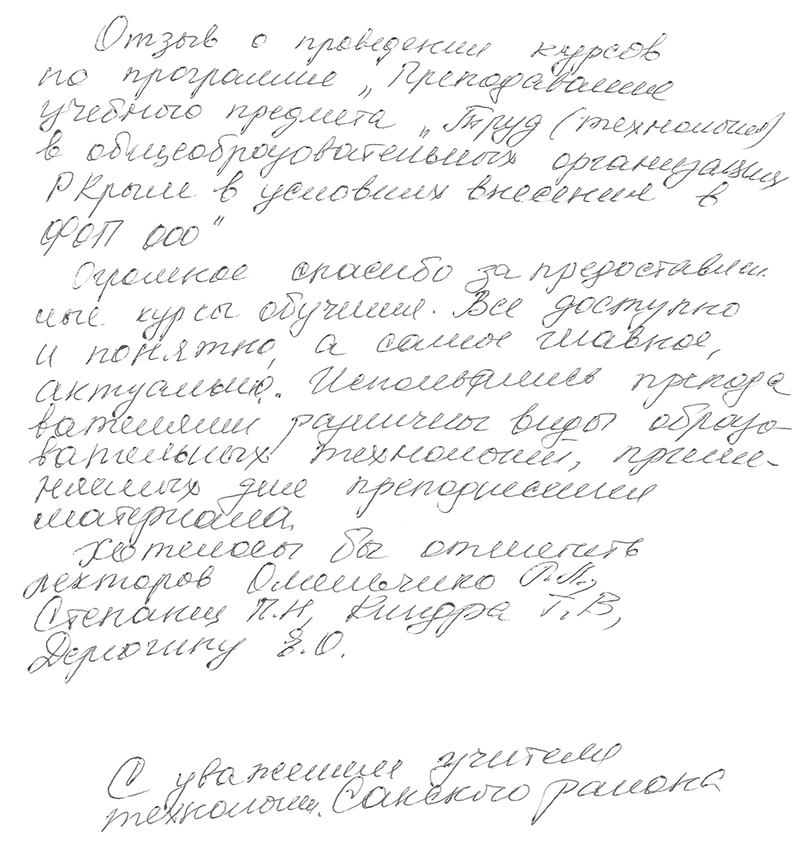 Отзыв о проведении курсов
по программе „Преподавание
учебного предмета „Труд (технология)
в общеобразовательных организациях
РКрым в условиях внесения в
ФОП ООО"
Огромное спасибо за предоставлен
ные курсы обучения. Все доступно
и понятно, а самое главное,
актуально. Использовались препода
вателями различны виды образо-
вательных технологий, приме-
няемых для преподнесения
материала.
Хотелось бы отметить
лекторов Омельченко Р.П.,
Степанец П.Н, Киндра Г.В,
Дерюгину Е.О.
С уважением учителя
технологии. Сакского района